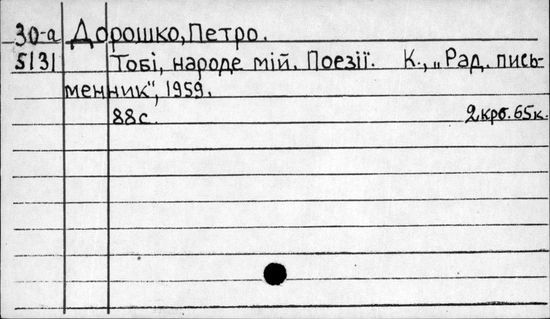 30-а Дорошко, Петро.
5131 Тобі, народе мій. Поезії. К., „Рад. пись-
менник", 1959.
88с. 2крб. 65к.